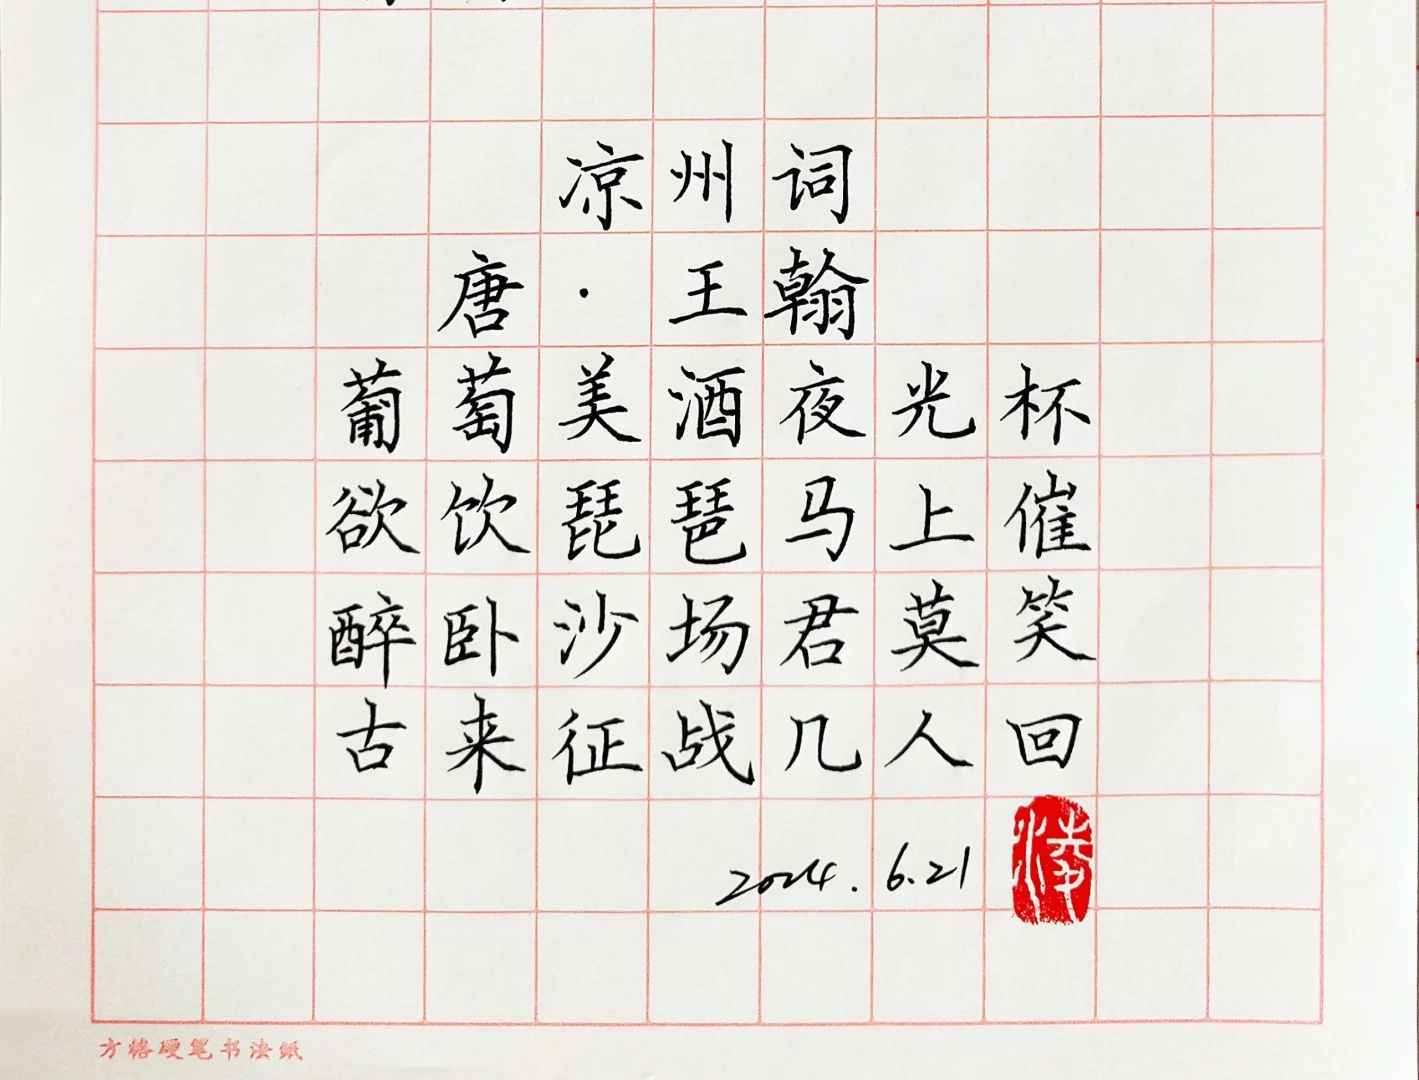 凉州词
唐·王翰
葡萄美酒夜光杯
欲饮琵琶马上催
醉卧沙场君莫笑
古来征战几人回
2024.6.21
方格硬笔书法纸